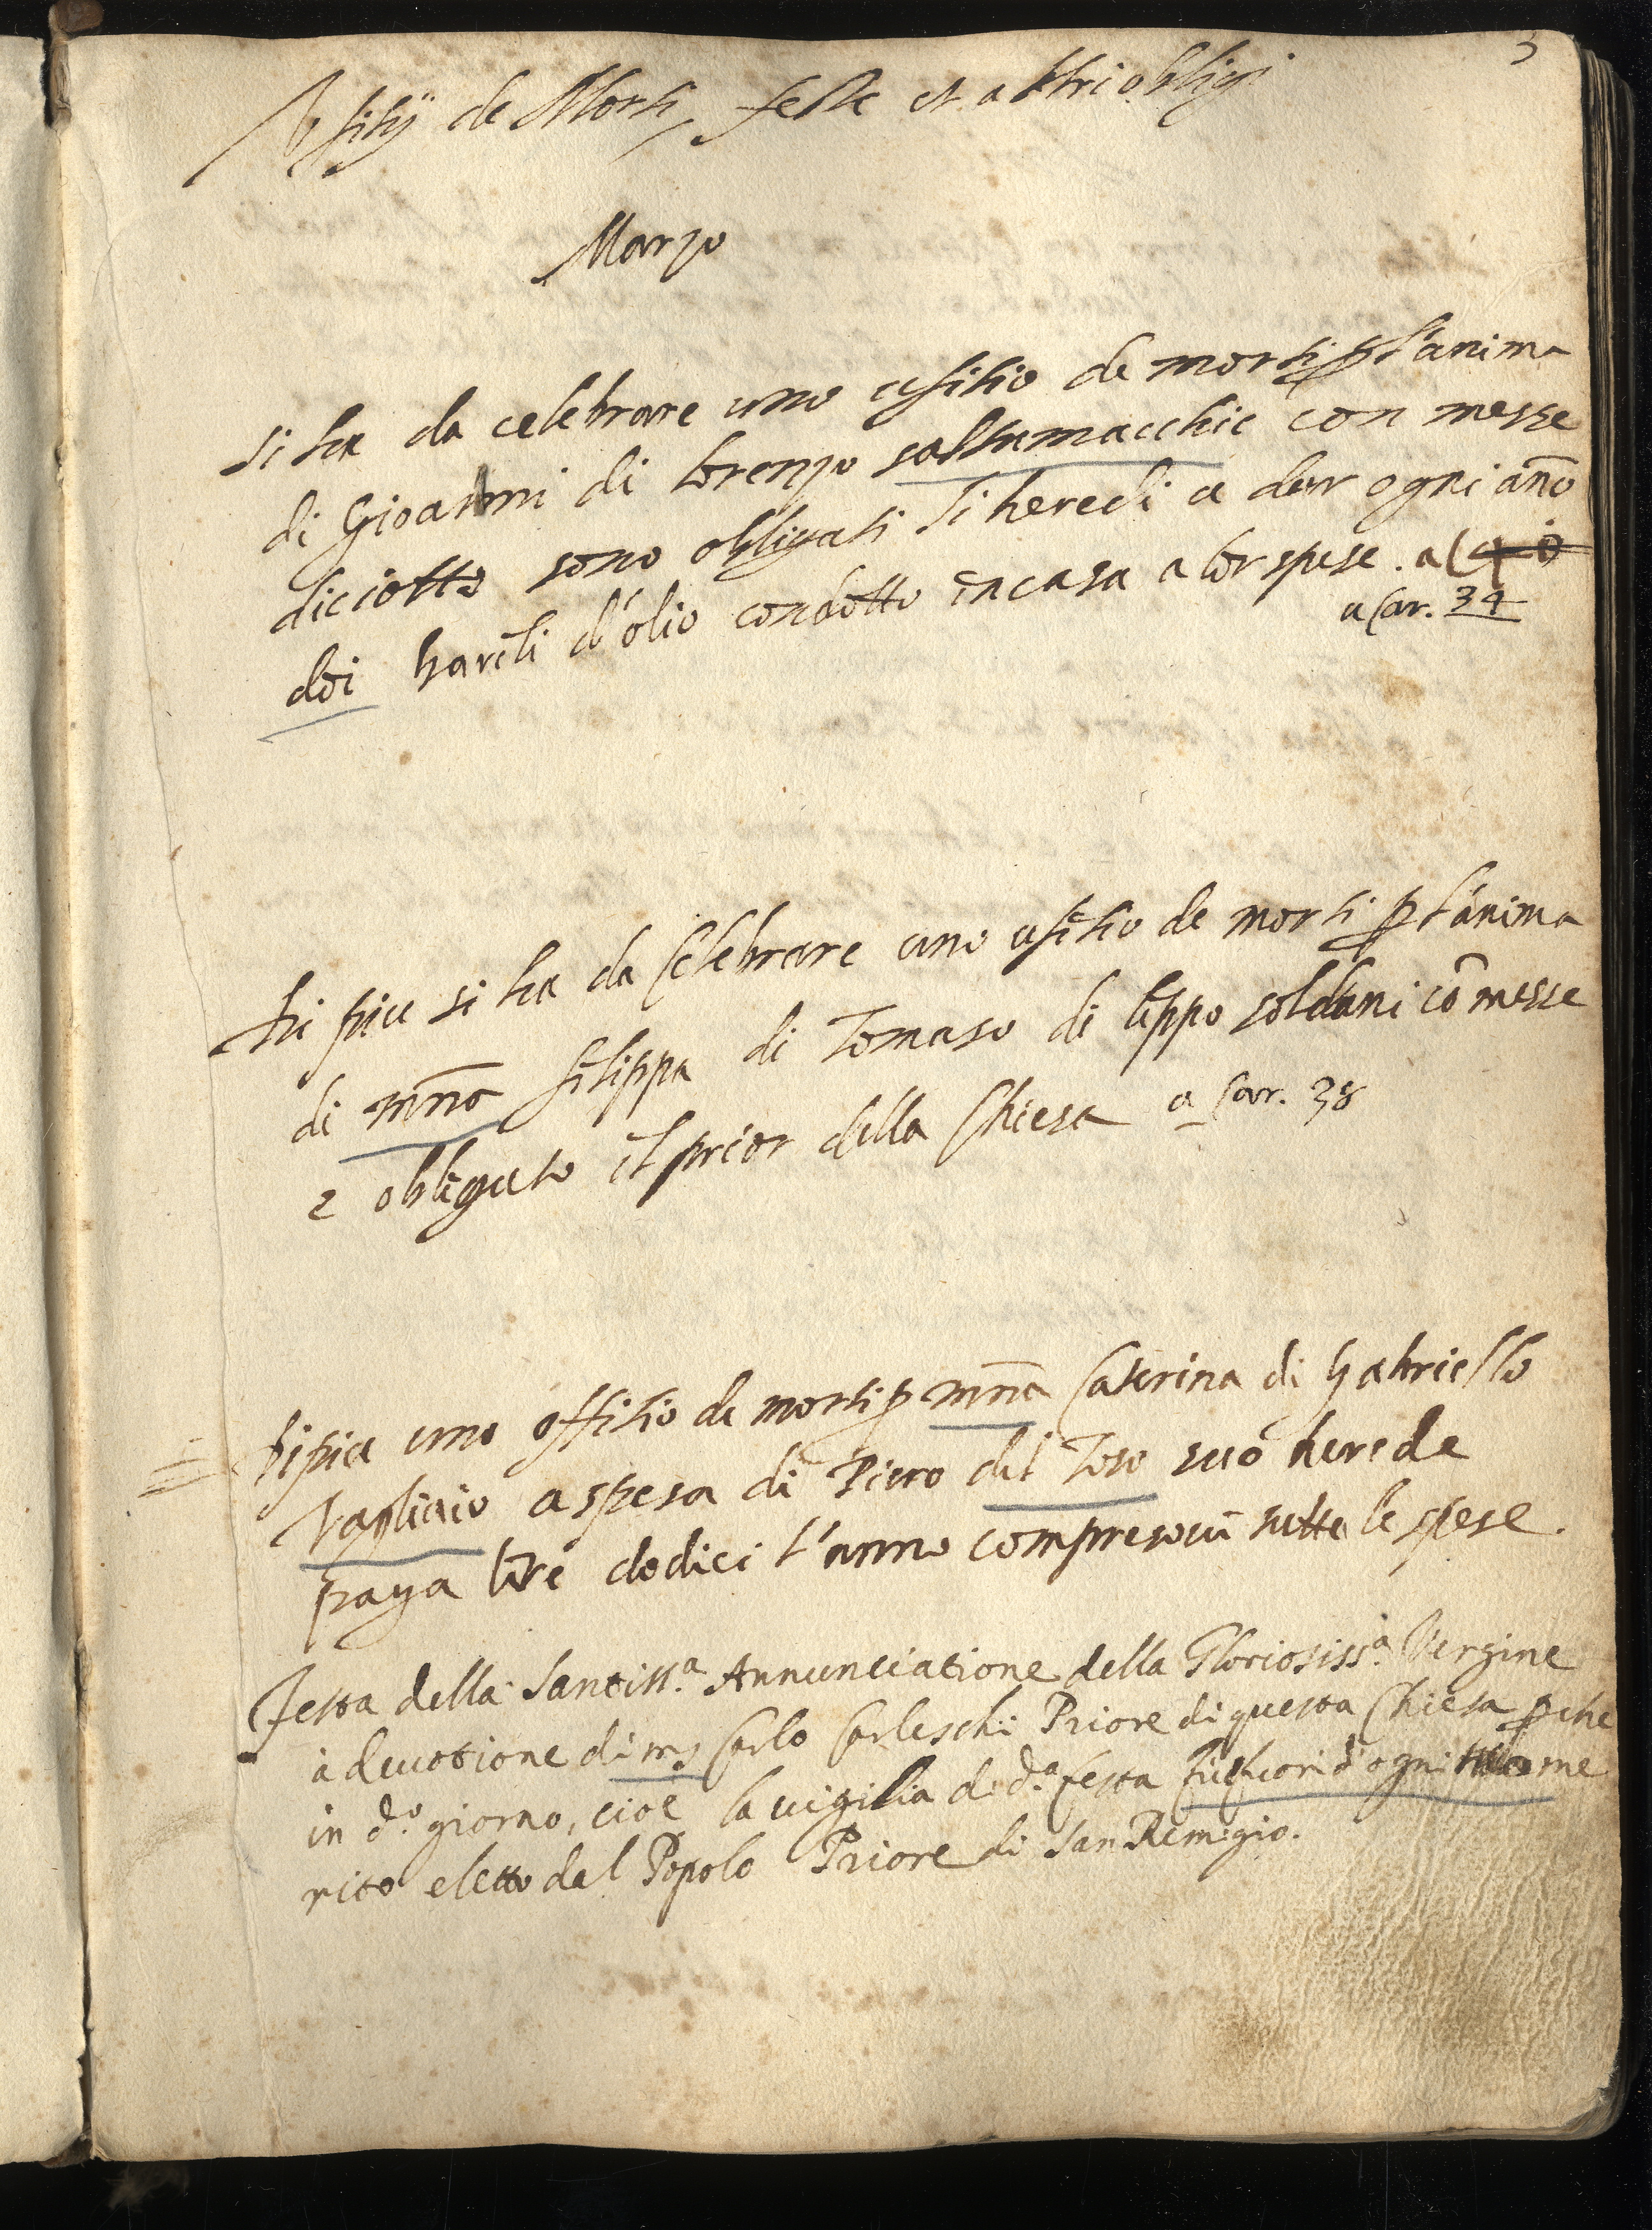 3
Ufitij de Morti, feste et altri oblighi
Marzo
Si ha da celebrare uno ufitio de morti p l'anima
di Gioanni di Lorenzo saltamacchie con messe
diciotto sono obligati li heredi a dar ogni año
doi barili d'olio condotto in casa a lor spese. a
a Car. 34
Di piu si ha da Celebrare uno ufitio de morti p l'anima
di mña filippa di Tomaso di lippo soldani cõ messe
e obligato il prior della Chiesa a Car. 38
Di piu uno offitio de morti p mña Caterina di Gabriello
Vagliaio a spesa di Piero del Toso suo herede
paga lire dodici l'anno compresovi tutte le spese.
Festa della Santiss.a Annunciatione della Gloriosiss.a Vergine
à devotione di m.s Carlo Carleschi Priore di questa Chiesa p che
in d.o giorno, cioè la vigilia di d.a festa fù fuori d'ogni suo me
rito eletto dal Popolo Priore di San Remigio.